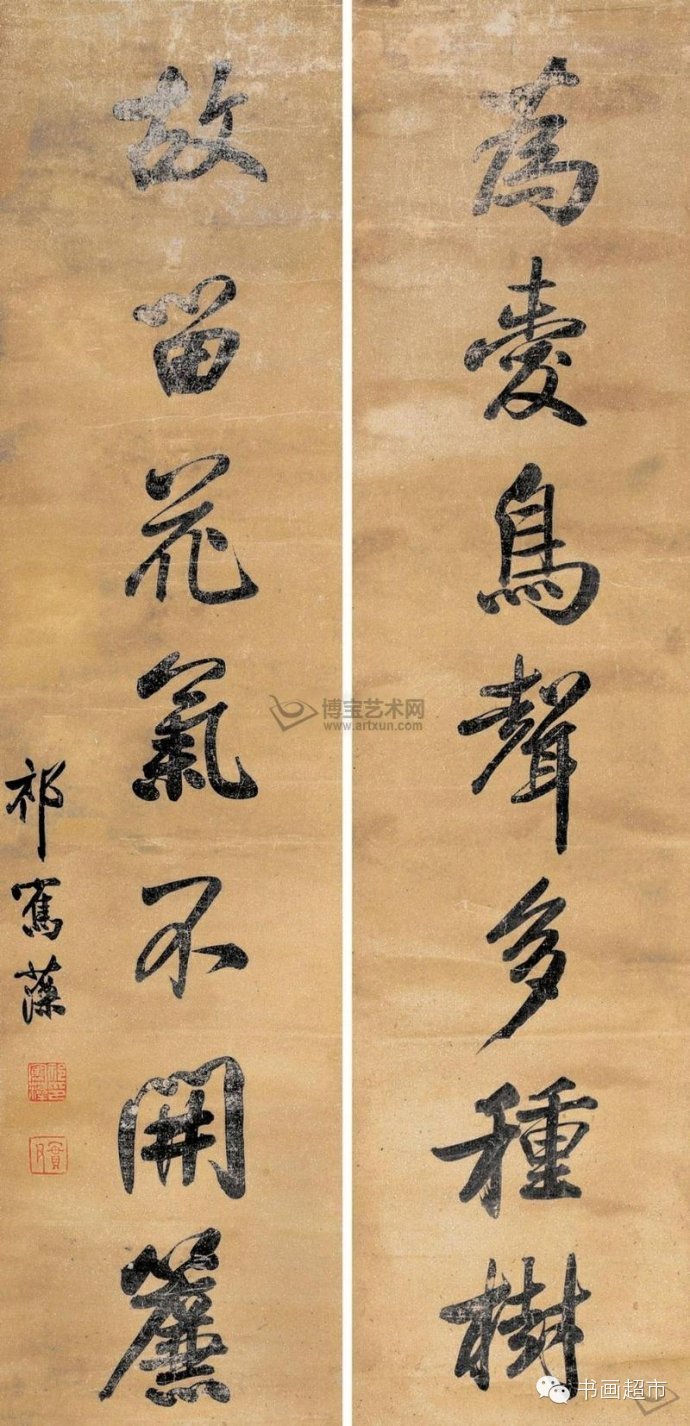 為愛鳥聲多種樹
故留花氣不開簾
祁寯藻
博宝艺术网
www.artxun.com
书画超市